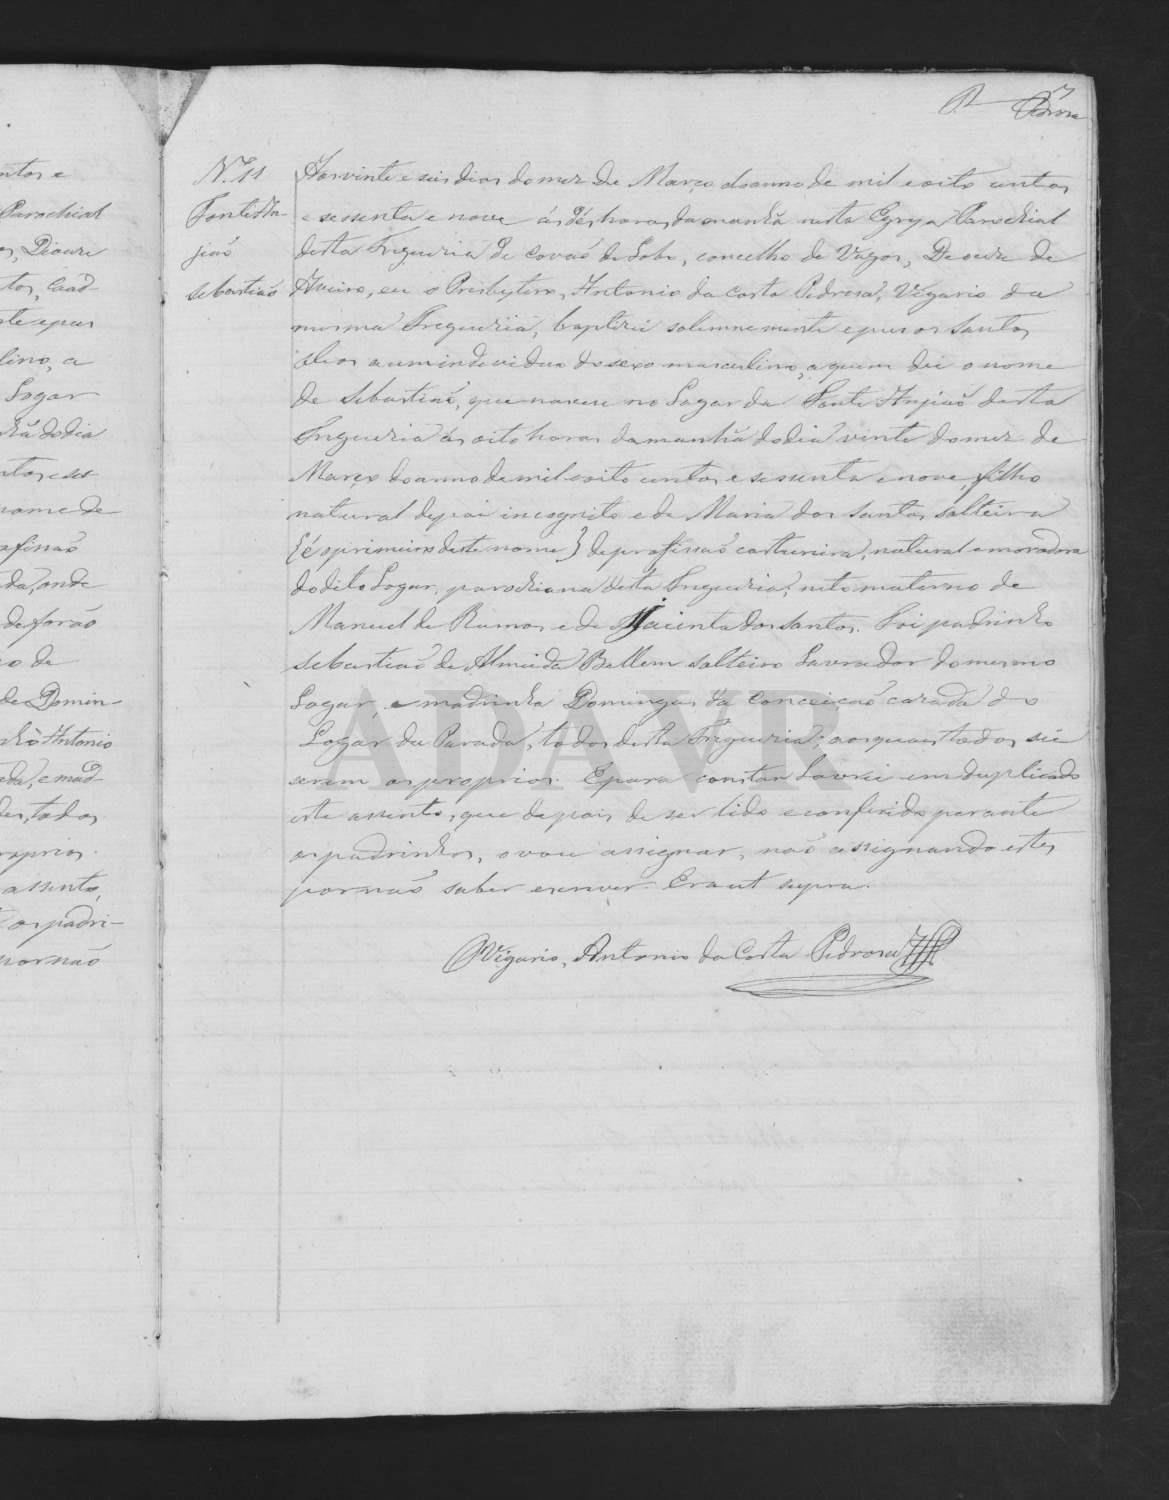 7
Pedrosa
N.º 11
Fonte An-
jeaõ
Sebastiaõ
Aos vinte e seis dias do mez de Março do anno de mil e oito centos
e sessenta e nove ás déz horas da manhã nesta Egreja Parochial
desta Freguezia de Covaõ do Lobo, concelho de Vagos, Diocese de
Aveiro, eu o Presbytero, Antonio da Costa Pedrosa, Vigario da
mesma Freguezia, baptizei solemnemente e puz os santos
oleos a um individuo do sexo masculino, a quem dei o nome
de Sebastiaõ, que nasceu no Logar da Fonte Anjeaõ desta
Freguezia ás oito horas da manhã do dia vinte do mez de
Março do anno de mil e oito centos e sessenta e nove, filho
natural de pai incognito e de Maria dos Santos, solteira
(é o primeiro deste nome) de profissaõ costureira, natural e moradora
do dito Logar, parochiana desta Freguezia; neto materno de
Manuel de Ramos e de Jacinta dos Santos. Foi padrinho
Sebastiaõ de Almeida Bellem solteiro Lavrador do mesmo
Logar, e madrinha Domingas da Conceiçaõ casada do
Logar da Parada, todos desta Freguezia; aos quaes todos sei
serem os proprios. E para constar Lavrei em duplicado
este assento, que depois de ser lido e conferido perante
os padrinhos, o vou assignar, naõ assignando estes
por naõ saber escrever. Era ut supra.
O Vigario, Antonio da Costa Pedrosa
ntos e
Parochial
Diocese
tos, Cead-
te e puz
lino, a
Logar
hã do dia
ntos e se-
nome de
ofissaõ
da, onde
de foraõ
to de
de Domin-
nhò Antonio
da, e mad-
des, todos
roprios.
assento,
os padri-
por naõ
ADAVR